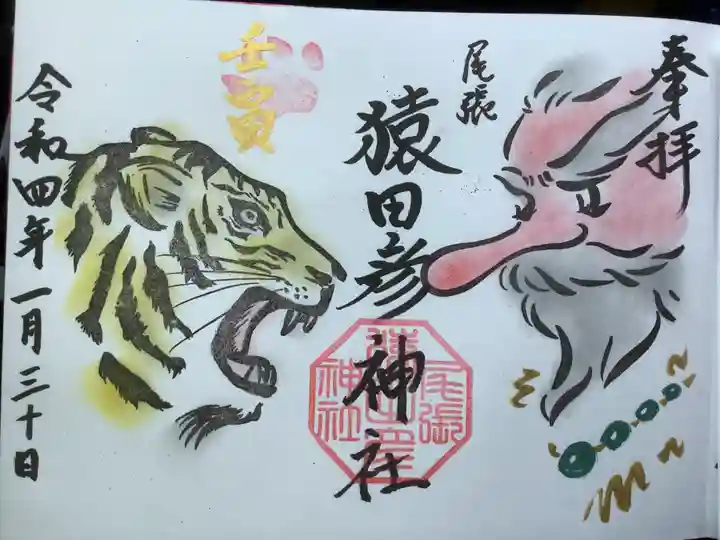 奉拝
尾張
猿田彦神社
尾張
猿田彦
神社
壬寅
令和四年一月三十日